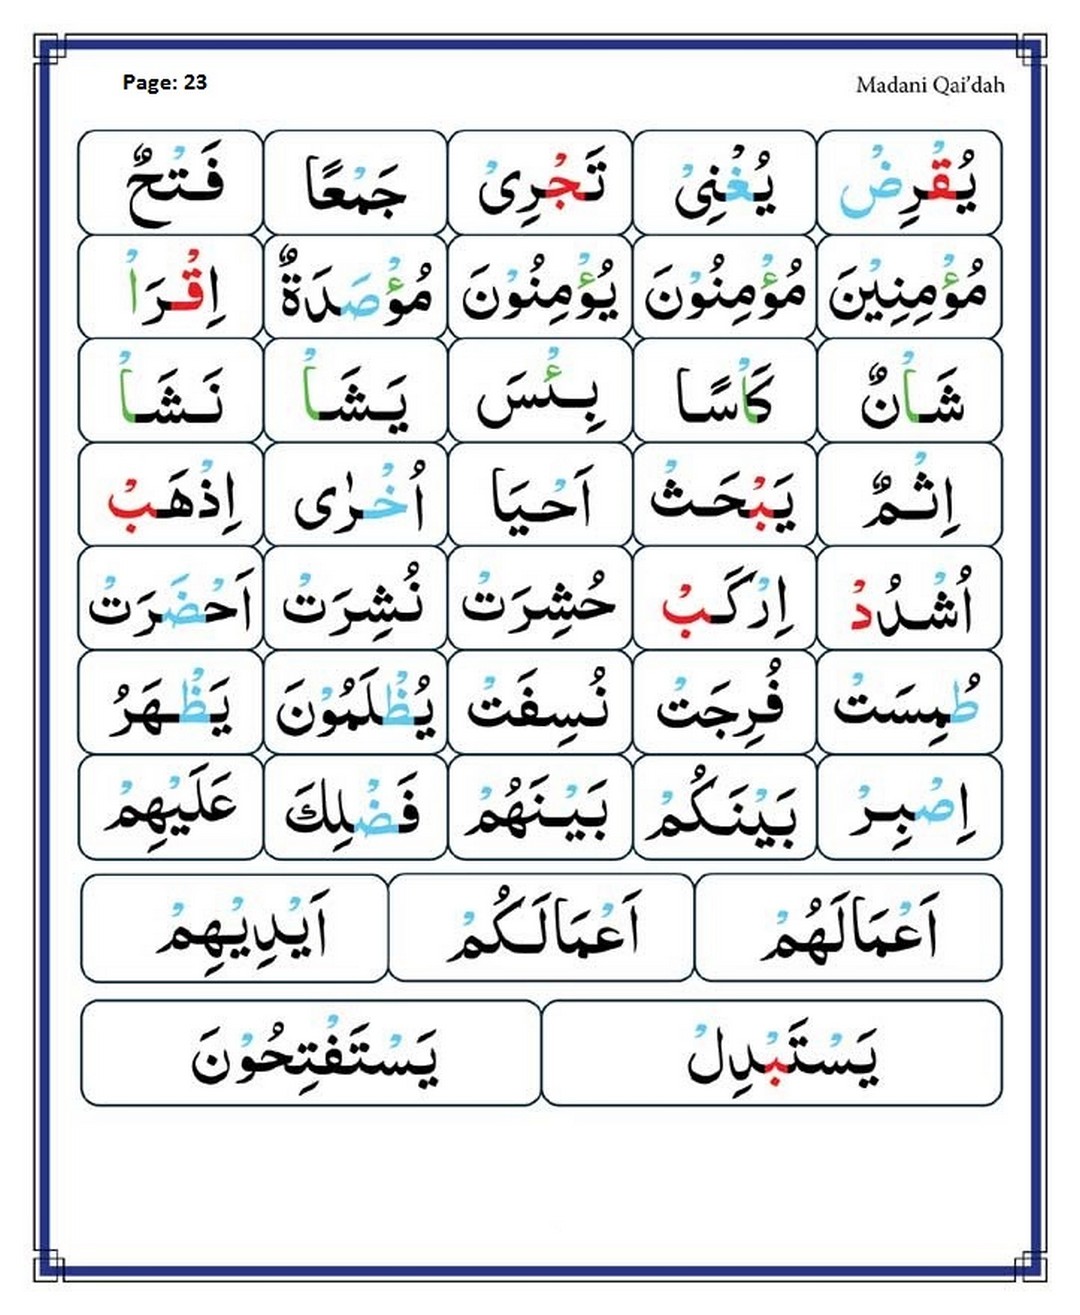 Page: 23 Madani Qai'dah
يُقْرِضْ يُغْنِىْ تَجْرِىْ جَمْعًا فَتْحٌ
مُؤْمِنِيْنَ مُؤْمِنُوْنَ يُؤْمِنُوْنَ مُؤْصَدَةٌ اِقْرَاْ
شَاْنٌ كَاْسًا بِئْسَ يَشَاْ نَشَاْ
اِثْمٌ يَبْحَثْ اَحْيَا اُخْرٰى اِذْهَبْ
اُشْدُدْ اِرْكَبْ حُشِرَتْ نُشِرَتْ اَحْضَرَتْ
طُمِسَتْ فُرِجَتْ نُسِفَتْ يُظْلَمُوْنَ يَظْهَرُ
اِصْبِرْ بَيْنَكُمْ بَيْنَهُمْ فَضْلِكَ عَلَيْهِمْ
اَعْمَالَهُمْ اَعْمَالَكُمْ اَيْدِيْهِمْ
يَسْتَبْدِلْ يَسْتَفْتِحُوْنَ